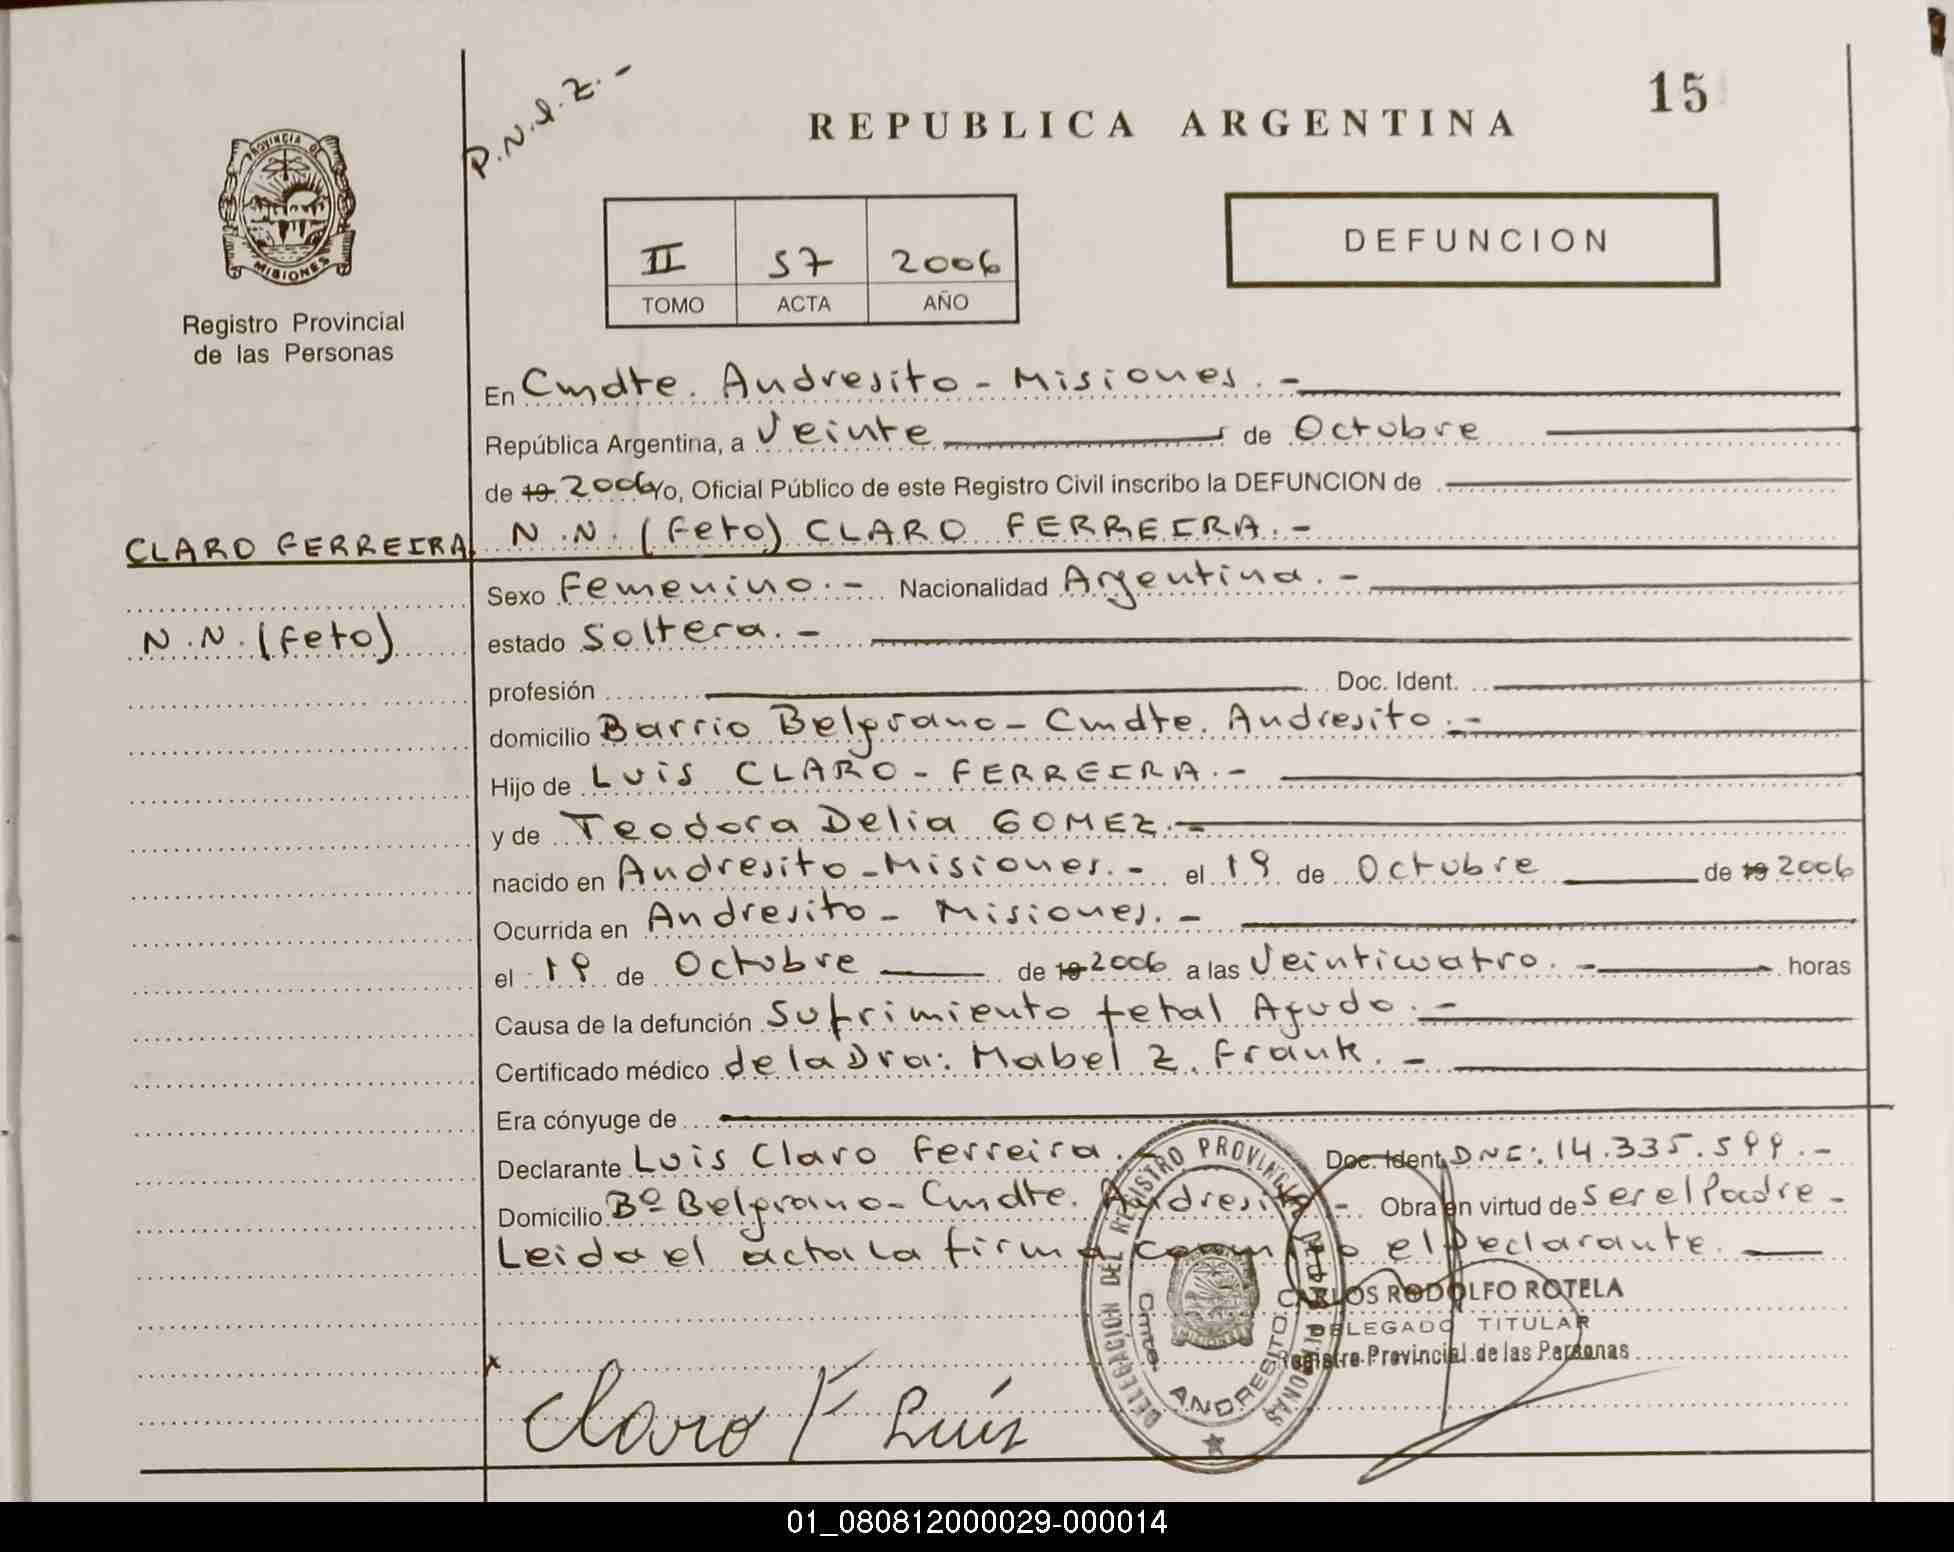 15
P.N.I.Z.-
REPUBLICA ARGENTINA
PROVINCIA DE
MISIONES
Registro Provincial
de las Personas
II 57 2006
TOMO ACTA AÑO
DEFUNCION
En Cmdte. Andresito - Misiones.-
República Argentina, a Veinte de Octubre
de 19 2006 Yo, Oficial Público de este Registro Civil inscribo la DEFUNCION de
CLARO FERREIRA N.N. (feto) CLARO FERREIRA.-
Sexo Femenino.- Nacionalidad Argentina.-
N.N. (feto) estado Soltera.-
profesión Doc. Ident.
domicilio Barrio Belgrano - Cmdte. Andresito.-
Hijo de Luis CLARO - FERREIRA.-
y de Teodora Delia GOMEZ.-
nacido en Andresito - Misiones.- el 19 de Octubre de 19 2006
Ocurrida en Andresito - Misiones.-
el 19 de Octubre de 19 2006 a las Veinticuatro.- horas
Causa de la defunción Sufrimiento fetal Agudo.-
Certificado médico de la Dra: Mabel Z. Frank.-
Era cónyuge de
Declarante Luis Claro Ferreira.- Doc. Ident. DNI: 14.335.599.-
Domicilio Bº Belgrano - Cmdte. Andresito - Obra en virtud de ser el Padre -
Leida el acta la firma conmigo el Declarante.
DELEGACIÓN DEL REGISTRO PROVINCIAL DE LAS PERSONAS
Cmte. ANDRESITO
CARLOS RODOLFO ROTELA
DELEGADO TITULAR
Registro Provincial de las Personas
x
Claro F Luís
01_080812000029-000014